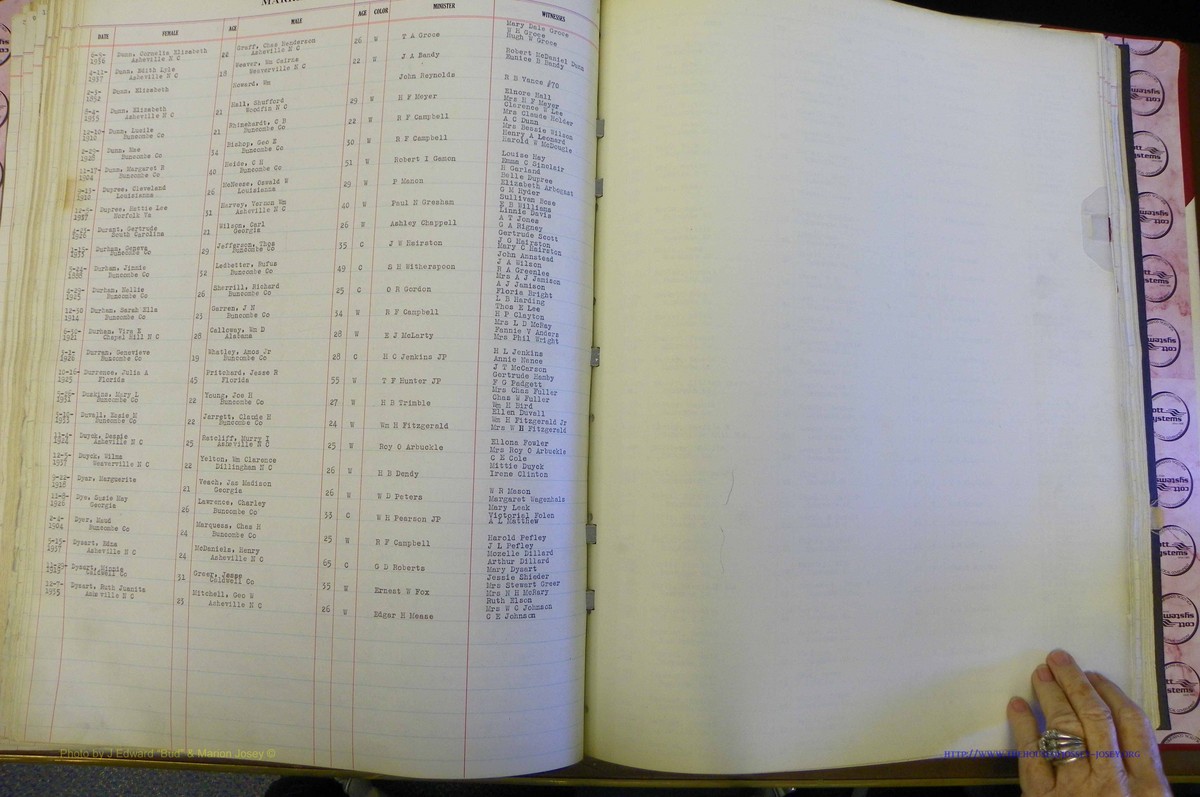 DATE FEMALE AGE MALE AGE COLOR MINISTER WITNESSES
Mary Dale Groce
6-6- Dunn, Cornelia Elizabeth 22 Groff, Chas Henderson 26 W T A Groce W H Groce
1936 Asheville N C Asheville N C Hugh W Groce
4-11- Dunn, Edith Lyle 18 Weaver, Wm Cairns 22 W J A Bandy Robert McDaniel Dunn
1937 Asheville N C Weaverville N C Eunice B Bandy
2-3- Dunn, Elizabeth Howard, Wm John Reynolds R B Vance #70
1852
Dunn, Elizabeth 21 Hall, Shufford 29 W H F Meyer Elnore Hall
1935 Asheville N C Woodfin N C Mrs H F Meyer
Clarence W Lee
12-10- Dunn, Lucile 21 Rhinehardt, C B 22 W R F Campbell Mrs Claude Holder
1910 Buncombe Co Buncombe Co A C Dunn
Mrs Bessie Wilson
Dunn, Mae 34 Bishop, Geo Z 30 W R F Campbell Henry A Leonard
1928 Buncombe Co Buncombe Co Harold W McDougle
11-17- Dunn, Margaret R 40 C H 51 W Robert I Gamon Louise Hay
1904 Buncombe Co Buncombe Co Emma C Sinclair
R Garland
Dupree, Cleveland 26 McNeese, Oswald W 29 W P Manon Belle Dupree
1910 Louisianna Louisianna Elizabeth Arbogast
G M Hyder
12-5- Dupree, Hattie Lee 31 Harvey, Vernon Wm 40 W Paul N Gresham Sullivan Rose
1937 Norfolk Va Asheville N C E B Williams
Linnie Davis
Durant, Gertrude 21 Wilson, Carl 26 W Ashley Chappell A T Jones
1926 South Carolina Georgia G A Rigney
Gertrude Scott
Durham, Geneva 29 Jefferson, Thos 35 C J W Hairston J G Hairston
1935 Buncombe Co Buncombe Co Mary C Hairston
John Annstead
Durham, Jinnie 32 Ledbetter, Rufus 49 C S H Witherspoon J A Wilson
1898 Buncombe Co Buncombe Co R A Greenlee
Mrs A J Jamison
2-22- Durham, Nellie 26 Sherrill, Richard 25 C O R Gordon A J Jamison
1925 Buncombe Co Buncombe Co Floria Bright
L B Harding
12-30 Durham, Sarah Ella 23 Garren, J N 34 W R F Campbell Thos E Lee
1914 Buncombe Co Buncombe Co H P Clayton
Mrs L D McRay
Durham, Vira E 28 Calloway, Wm D 28 W E J McLarty Fannie V Anders
1921 Chapel Hill N C Alabama Mrs Phil Wright
3-2- Durran, Genevieve 19 Whatley, Amos Jr 28 C H C Jenkins JP H L Jenkins
1926 Buncombe Co Buncombe Co Annie Nance
J T McCarson
10-16- Durrence, Julia A 45 Pritchard, Jesse R 55 W T F Hunter JP Gertrude Hamby
1925 Florida Florida F G Padgett
Mrs Chas Fuller
Duskins, Mary L 22 Young, Joe H 27 W H B Trimble Chas W Fuller
1914 Buncombe Co Buncombe Co Wm H Bird
Ellen Duvall
Duvall, Essie M 22 Jarrett, Claude H 24 W Wm H Fitzgerald Wm H Fitzgerald Jr
1933 Buncombe Co Buncombe Co Mrs W H Fitzgerald
11-4- Duyck, Bessie 25 Ratcliff, Murry I 25 W Roy O Arbuckle Ellene Fowler
1924 Asheville N C Asheville N C Mrs Roy O Arbuckle
C E Cole
12-5- Duyck, Wilma 22 Yelton, Wm Clarence 26 W H B Dendy Mittie Duyck
1937 Weaverville N C Dillingham N C Irene Clinton
9-22- Dyar, Marguerite 21 Veach, Jas Madison 26 W W D Peters W R Mason
1918 Georgia Margaret Wagenhals
Mary Leak
11-8- Dye, Susie May 26 Lawrence, Charley 33 C W H Pearson JP Victorial Folen
1926 Georgia Buncombe Co A L Matthew
Dyer, Maud 24 Marquess, Chas H 25 W R F Campbell Harold Pefley
1904 Buncombe Co Buncombe Co J L Pefley
Mozelle Dillard
5-15- Dysart, Edna 24 McDaniels, Henry 65 C G D Roberts Arthur Dillard
1937 Asheville N C Asheville N C Mary Dysart
Dysart, Minnie 31 Greer, Jesse 55 W Ernest W Fox Jessie Shieder
Caldwell Co Caldwell Co Mrs Stewart Greer
Mrs N H McRary
12-7- Dysart, Ruth Juanita 23 Mitchell, Geo W 26 W Edgar H Mease Ruth Elson
1935 Asheville N C Asheville N C Mrs W C Johnson
C E Johnson
Photo by J Edward "Bud" & Marion Josey ©